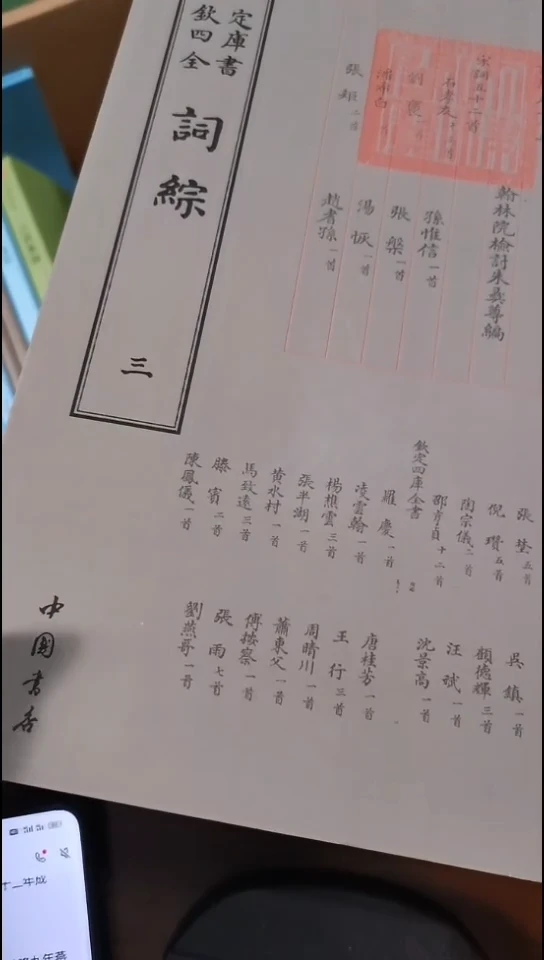 欽定四庫全書
詞綜
三
中國書店
宋詞五十二首
石孝友
劉褒
張頫二首
翰林院檢討朱彝尊編
孫惟信一首
張榘一首
湯恢一首
趙耆孫一首
張埜五首
倪瓚五首
陶宗儀二首
邵亨貞十二首
欽定四庫全書
羅慶一首
凌雲翰一首
楊樵雲三首
張半湖一首
黄水村一首
馬致遠三首
滕賓二首
陳鳳儀一首
吳鎮一首
顧德輝三首
汪斌一首
沈景高一首
唐桂芳一首
王行三首
周晴川一首
蕭東父一首
傅按察一首
張雨七首
劉燕哥一首
十一年成
九年燕